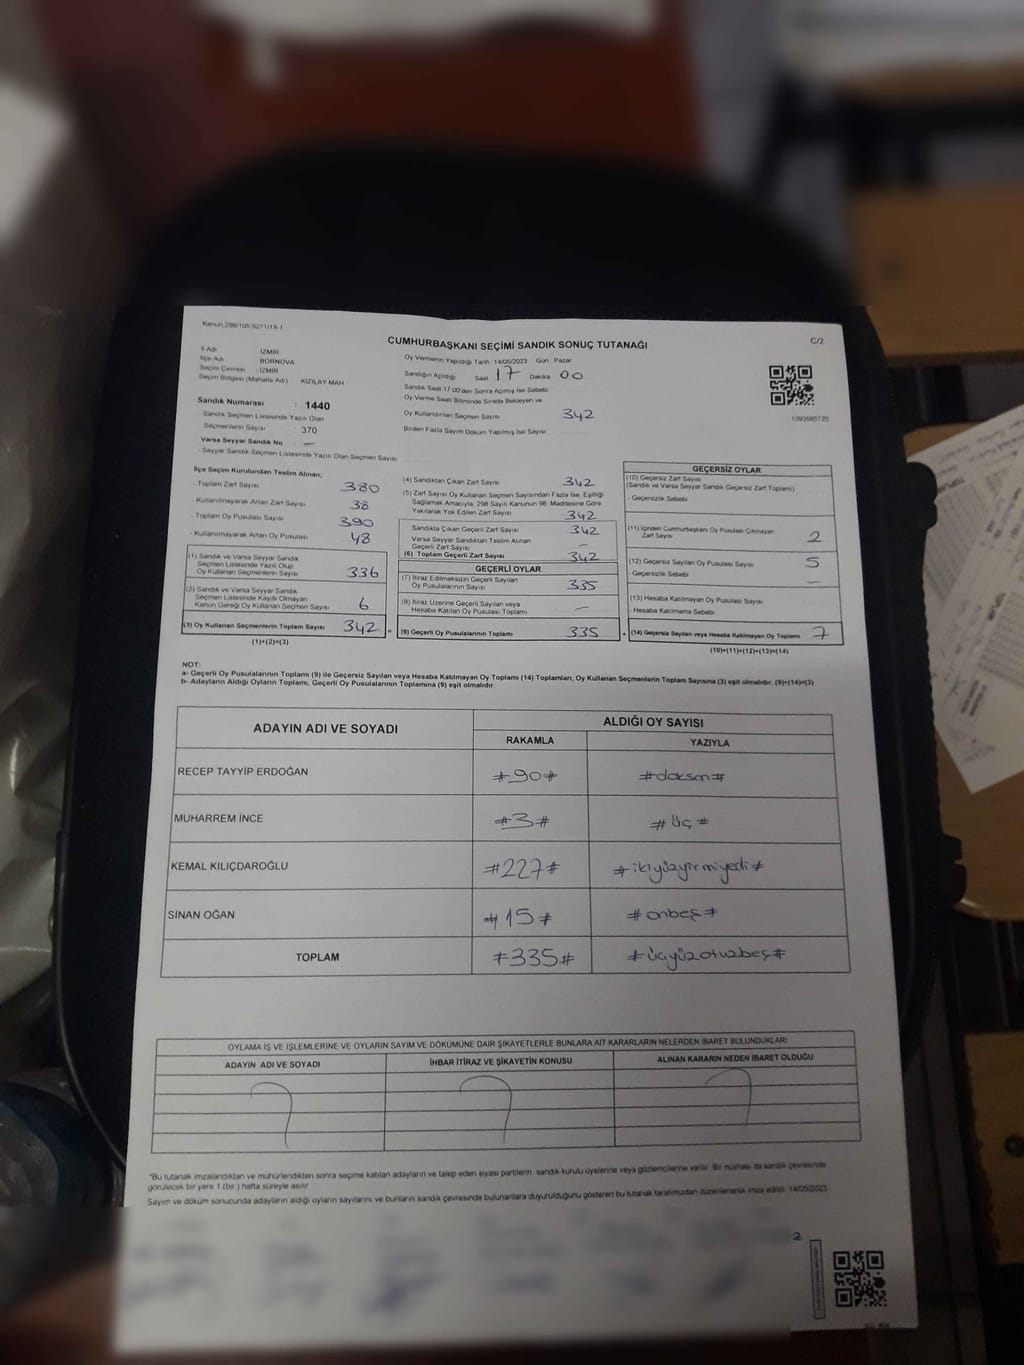 Kanun:298/105,6271/19-1
CUMHURBAŞKANI SEÇİMİ SANDIK SONUÇ TUTANAĞI
C/2
İl Adı : İZMİR
İlçe Adı : BORNOVA
Seçim Çevresi : İZMİR
Seçim Bölgesi (Mahalle Adı) : KIZILAY MAH
Sandık Numarası : 1440
- Sandık Seçmen Listesinde Yazılı Olan
Seçmenlerin Sayısı : 370
Varsa Seyyar Sandık No : —
- Seyyar Sandık Seçmen Listesinde Yazılı Olan Seçmen Sayısı :
Oy Vermenin Yapıldığı Tarih : 14/05/2023 Gün : Pazar
Sandığın Açıldığı Saat 17 Dakika 00
Sandık Saat 17.00'den Sonra Açılmış İse Sebebi
Oy Verme Saati Bitiminde Sırada Bekleyen ve
Oy Kullandırılan Seçmen Sayısı 342
Birden Fazla Sayım Döküm Yapılmış İse Sayısı :
1093585720
İlçe Seçim Kurulundan Teslim Alınan;
- Toplam Zarf Sayısı 380
- Kullanılmayarak Artan Zarf Sayısı 38
- Toplam Oy Pusulası Sayısı 390
- Kullanılmayarak Artan Oy Pusulası 48
(1) Sandık ve Varsa Seyyar Sandık
Seçmen Listesinde Yazılı Olup
Oy Kullanan Seçmenlerin Sayısı 336
(2) Sandık ve Varsa Seyyar Sandık
Seçmen Listesinde Kayıtlı Olmayan
Kanun Gereği Oy Kullanan Seçmen Sayısı 6
(3) Oy Kullanan Seçmenlerin Toplam Sayısı 342
(1)+(2)=(3)
(4) Sandıktan Çıkan Zarf Sayısı 342
(5) Zarf Sayısı Oy Kullanan Seçmen Sayısından Fazla İse, Eşitliği
Sağlamak Amacıyla, 298 Sayılı Kanunun 98. Maddesine Göre
Yakılarak Yok Edilen Zarf Sayısı 342
Sandıkta Çıkan Geçerli Zarf Sayısı 342
Varsa Seyyar Sandıktan Teslim Alınan
Geçerli Zarf Sayısı —
(6) Toplam Geçerli Zarf Sayısı 342
GEÇERLİ OYLAR
(7) İtiraz Edilmeksizin Geçerli Sayılan
Oy Pusulalarının Sayısı 335
(8) İtiraz Üzerine Geçerli Sayılan veya
Hesaba Katılan Oy Pusulası Toplamı —
= (9) Geçerli Oy Pusulalarının Toplamı 335
GEÇERSİZ OYLAR
(10) Geçersiz Zarf Sayısı
(Sandık ve Varsa Seyyar Sandık Geçersiz Zarf Toplamı)
- Geçersizlik Sebebi
(11) İçinden Cumhurbaşkanı Oy Pusulası Çıkmayan
Zarf Sayısı 2
(12) Geçersiz Sayılan Oy Pusulası Sayısı 5
- Geçersizlik Sebebi —
(13) Hesaba Katılmayan Oy Pusulası Sayısı
- Hesaba Katılmama Sebebi
+ (14) Geçersiz Sayılan veya Hesaba Katılmayan Oy Toplamı 7
(10)+(11)+(12)+(13)=(14)
NOT:
a- Geçerli Oy Pusulalarının Toplamı (9) ile Geçersiz Sayılan veya Hesaba Katılmayan Oy Toplamı (14) Toplamları, Oy Kullanan Seçmenlerin Toplam Sayısına (3) eşit olmalıdır. (9)+(14)=(3)
b- Adayların Aldığı Oyların Toplamı, Geçerli Oy Pusulalarının Toplamına (9) eşit olmalıdır.
ADAYIN ADI VE SOYADI
ALDIĞI OY SAYISI
RAKAMLA YAZIYLA
RECEP TAYYİP ERDOĞAN #90# #doksan#
MUHARREM İNCE #3# #üç#
KEMAL KILIÇDAROĞLU #227# #ikiyüzyirmiyedi#
SİNAN OĞAN #15# #onbeş#
TOPLAM #335# #üçyüzotuzbeş#
OYLAMA İŞ VE İŞLEMLERİNE VE OYLARIN SAYIM VE DÖKÜMÜNE DAİR ŞİKAYETLERLE BUNLARA AİT KARARLARIN NELERDEN İBARET BULUNDUKLARI
ADAYIN ADI VE SOYADI İHBAR İTİRAZ VE ŞİKAYETİN KONUSU ALINAN KARARIN NEDEN İBARET OLDUĞU
"Bu tutanak imzalandıktan ve mühürlendikten sonra seçime katılan adayların ve talep eden siyasi partilerin sandık kurulu üyelerine veya gözlemcilerine verilir. Bir nüshası da sandık çevresinde
görülecek bir yere 1 (bir ) hafta süreyle asılır
Sayım ve döküm sonucunda adayların aldığı oyların sayılarını ve bunların sandık çevresinde bulunanlara duyurulduğunu gösteren bu tutanak tarafımızdan düzenlenerek imza edildi. 14/05/2023
2